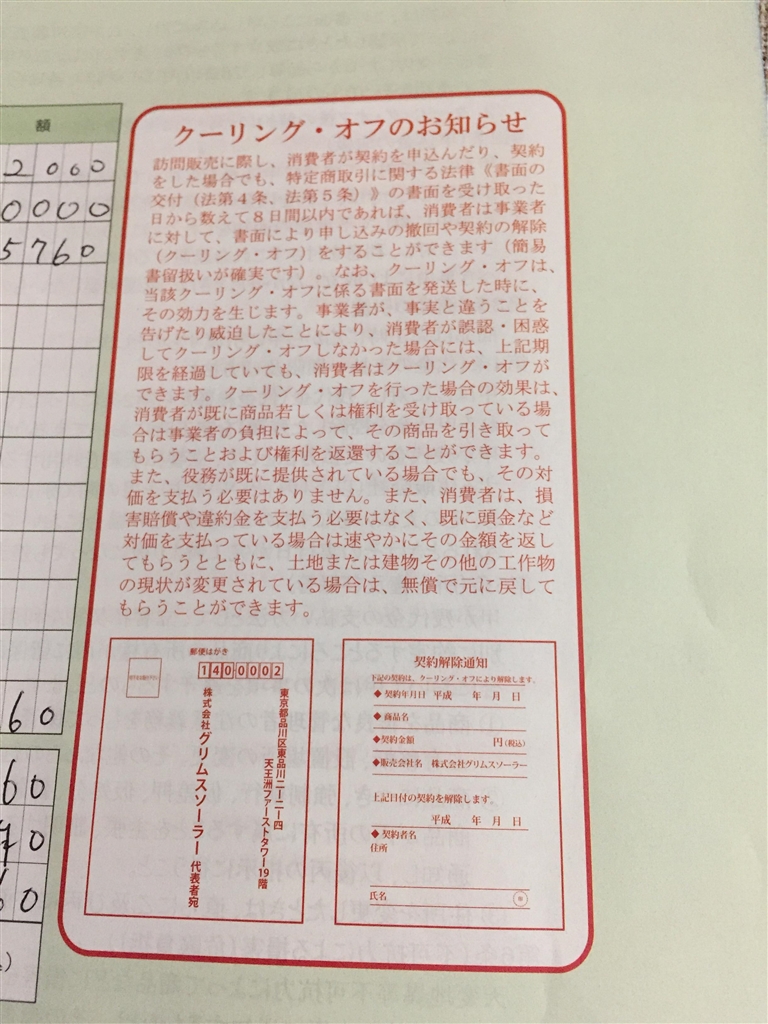 額
2000
0000
5760
60
60
70
60
クーリング・オフのお知らせ
訪問販売に際し、消費者が契約を申込んだり、契約
をした場合でも、特定商取引に関する法律《書面の
交付（法第４条、法第５条）》の書面を受け取った
日から数えて８日間以内であれば、消費者は事業者
に対して、書面により申し込みの撤回や契約の解除
（クーリング・オフ）をすることができます（簡易
書留扱いが確実です）。なお、クーリング・オフは、
当該クーリング・オフに係る書面を発送した時に、
その効力を生じます。事業者が、事実と違うことを
告げたり威迫したことにより、消費者が誤認・困惑
してクーリング・オフしなかった場合には、上記期
限を経過していても、消費者はクーリング・オフが
できます。クーリング・オフを行った場合の効果は、
消費者が既に商品若しくは権利を受け取っている場
合は事業者の負担によって、その商品を引き取って
もらうことおよび権利を返還することができます。
また、役務が既に提供されている場合でも、その対
価を支払う必要はありません。また、消費者は、損
害賠償や違約金を支払う必要はなく、既に頭金など
対価を支払っている場合は速やかにその金額を返し
てもらうとともに、土地または建物その他の工作物
の現状が変更されている場合は、無償で元に戻して
もらうことができます。
郵便はがき
1400002
東京都品川区東品川二-二-四
天王洲ファーストタワー19階
株式会社グリムスソーラー 代表者宛
契約解除通知
下記の契約は、クーリング・オフにより解除します。
◆契約年月日 平成 年 月 日
◆商品名
◆契約金額 円(税込)
◆販売会社名 株式会社グリムスソーラー
上記日付の契約を解除します。
平成 年 月 日
◆契約者名
住所
氏名 ㊞